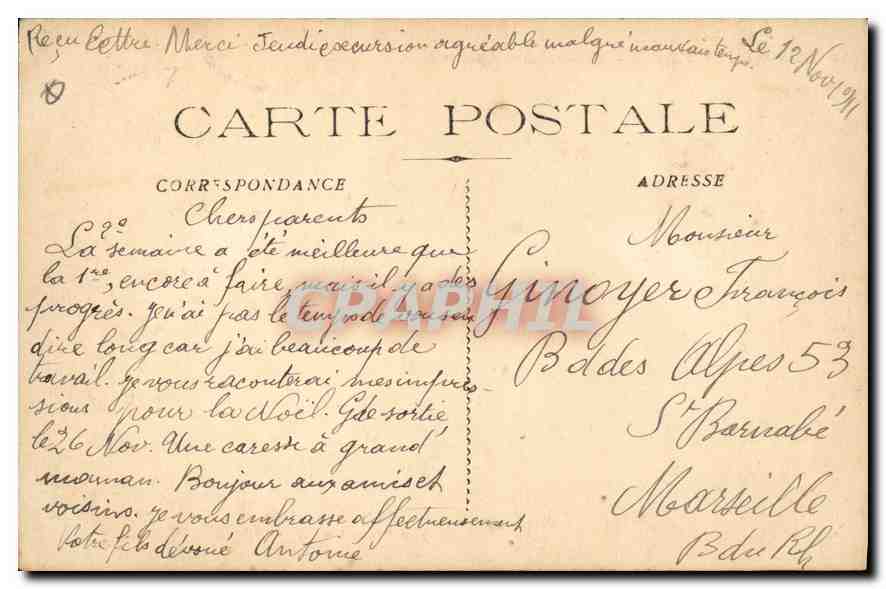 Reçu lettre. Merci. Jeudi excursion agréable malgré mauvais temps.
Le 12 Nov 1911
CARTE POSTALE
CORRESPONDANCE
Chers parents
La 2e semaine a été meilleure que
la 1re, encore à faire, mais il y a des
progrès. Je n'ai pas le temps de vous en
dire long car j'ai beaucoup de
travail. Je vous raconterai mes impres-
sions pour la Noël. Gde sortie
le 26 Nov. Une caresse à grand'
maman. Bonjour aux amis et
voisins. Je vous embrasse affectueusement
Votre fils dévoué Antoine
ADRESSE
Monsieur
Ginoyer François
Bd des Alpes 53
St Barnabé
Marseille
B du Rh
CPAPHIL